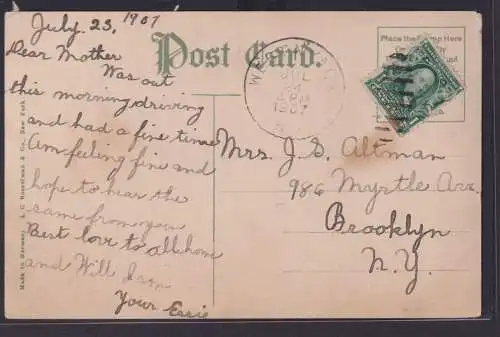 July 23, 1907
Post Card.
Place the Stamp Here
Dear Mother
Was out
this morning driving
and had a fine time
Am feeling fine and
hope to hear the
same from you
Best love to all home
and Will
Your Essie
Mrs. J. S. Altman
986 Myrtle Ave.
Brooklyn
N.Y.
JUL
1907
Made in Germany
New York